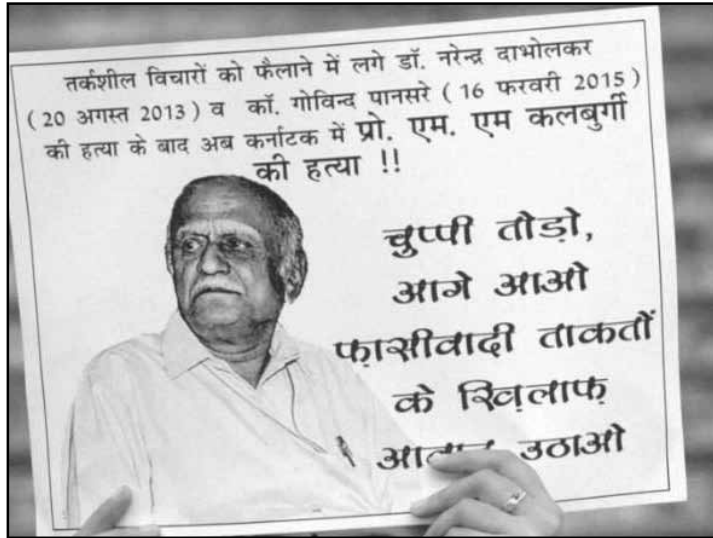 तर्कशील विचारों को फैलाने में लगे डॉ. नरेन्द्र दाभोलकर
( 20 अगस्त 2013 ) व कॉ. गोविन्द पानसरे ( 16 फरवरी 2015 )
की हत्या के बाद अब कर्नाटक में प्रो. एम. एम कलबुर्गी
की हत्या !!
चुप्पी तोड़ो,
आगे आओ
फ़ासीवादी ताकतों
के ख़िलाफ़
उठाओ